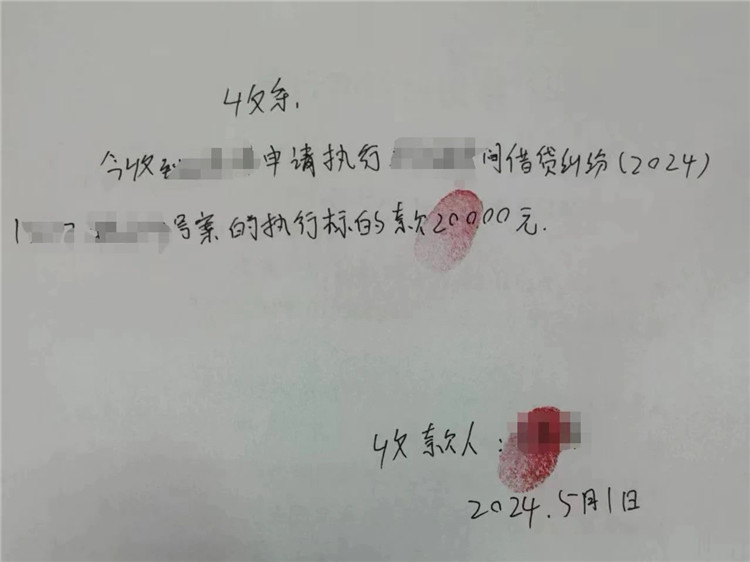 收条.
今收到 申请执行 间借贷纠纷(2024)
号案的执行标的款20000元.
收款人:
2024.5月1日